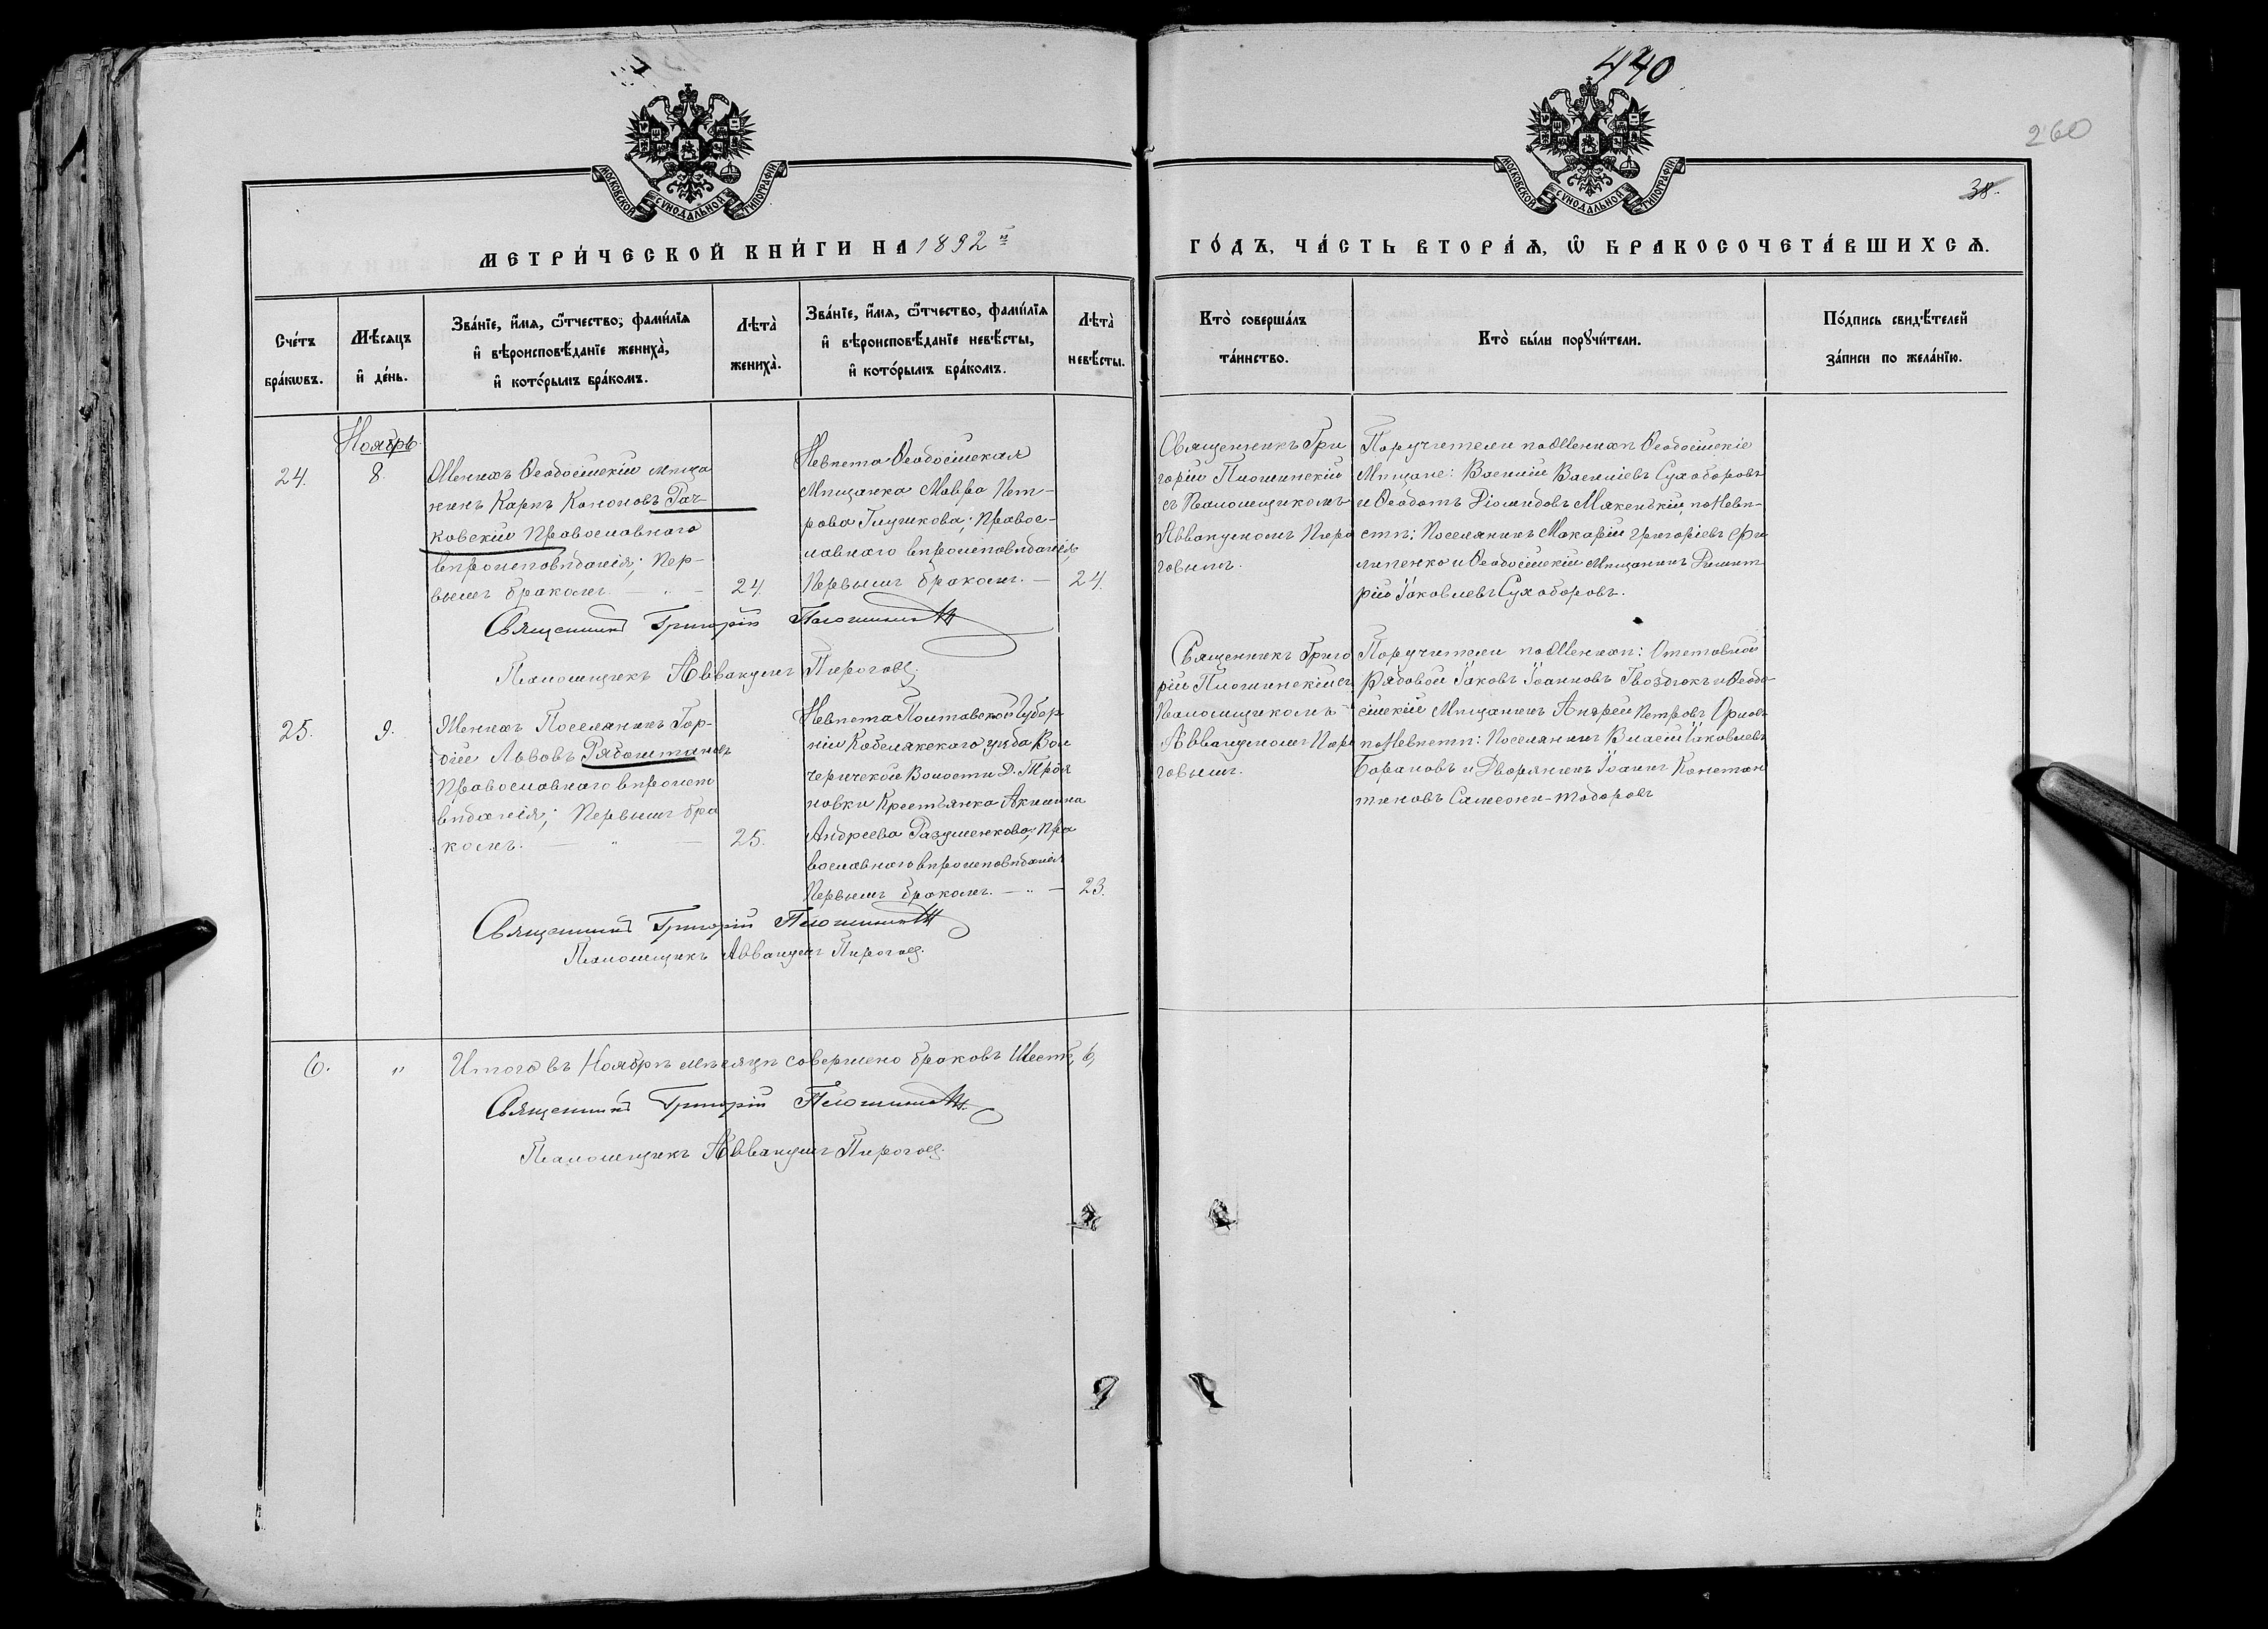 440
260
38.
МОСКОВСКОЙ СУНОДАЛЬНОЙ ТИПОГРАФІИ
МОСКОВСКОЙ СУНОДАЛЬНОЙ ТИПОГРАФІИ
МЕТРИ́ЧЕСКОЙ КНИ́ГИ НА 1892й
ГО́ДЪ, ЧА́СТЬ ВТОРА́Ѧ, Ѽ БРАКОСОЧЕТА́ВШИХСѦ.
Сче́тъ
бра́кωвъ.
Мѣ́сяцъ
и҆ де́нь.
Зва́нїе, и҆́мѧ, ѻ҆́тчество, фами́лїѧ
и҆ вѣроисповѣ́данїе жениха̀,
и҆ кото́рымъ бра́комъ.
Лѣта̀
жениха̀.
Зва́нїе, и҆́мѧ, ѻ҆́тчество, фами́лїѧ
и҆ вѣроисповѣ́данїе невѣ́сты,
и҆ кото́рымъ бра́комъ.
Лѣта̀
невѣ́сты.
Кто̀ соверша́лъ
та́инство.
Кто̀ бы́ли порꙋчи́тели.
По́дпись свидѣ́телей
за́писи по жела́нїю.
Ноябрь.
24.
8.
Женихъ Ѳеодосійскій мѣща
нинъ Карпъ Кононовъ Рач-
ковскій Православнаго
вѣроисповѣданія; Пер-
вымъ бракомъ. — " —
24.
Невѣста Ѳеодосійская
Мѣщанка Мавра Пет-
рова Глушкова; Правос-
лавнаго вѣроисповѣданія;
Первымъ бракомъ. —
24.
Священникъ Гри
горій Плошинскій
съ Псаломщикомъ
Аввакумомъ Пиро
говымъ.
Поручители по Женихѣ Ѳеодосійскіе
Мѣщане: Василій Василіевъ Сухоборовъ
и Ѳеодотъ Діомидовъ Макенскій, по Невѣ-
стѣ: Поселянинъ Макарій Григоріевъ Фи
липенко и Ѳеодосійскій Мѣщанинъ Димит
рій Іаковлевъ Сухоборовъ.
Священникъ Григорій Плошинскій
Псаломщикъ Аввакумъ Пироговъ.
25.
9.
Женихъ Поселянинъ Гор-
дій Львовъ Рябоштановъ
Православнаго вѣроиспо
вѣданія; Первымъ бра
комъ. — " —
25.
Невѣста Полтавской Губер
ніи Кобелякскаго уѣзда Вол
черической Волости Д. Троя
новки Крестьянка Акилина
Андреева Разуменкова; Пра
вославнаго вѣроисповѣданія
Первымъ бракомъ. — " —
23.
Священникъ Григо
рій Плошинскій съ
Псаломщикомъ
Аввакумомъ Пиро
говымъ.
Поручители по Женихѣ: Отставной
Рядовой Іаковъ Іоанновъ Гвоздюкъ и Ѳеодо-
сійскій Мѣщанинъ Андрей Петровъ Орловъ
по Невѣстѣ: Поселянинъ Власій Іаковлевъ
Борановъ и Дворянинъ Іоаннъ Констан
тиновъ Самсони-Тодоровъ
Священникъ Григорій Плошинскій
Псаломщикъ Аввакумъ Пироговъ.
6. " Итого въ Ноябрѣ мѣсяцѣ совершено браковъ Шесть, 6,
Священникъ Григорій Плошинскій.
Псаломщикъ Аввакумъ Пироговъ.